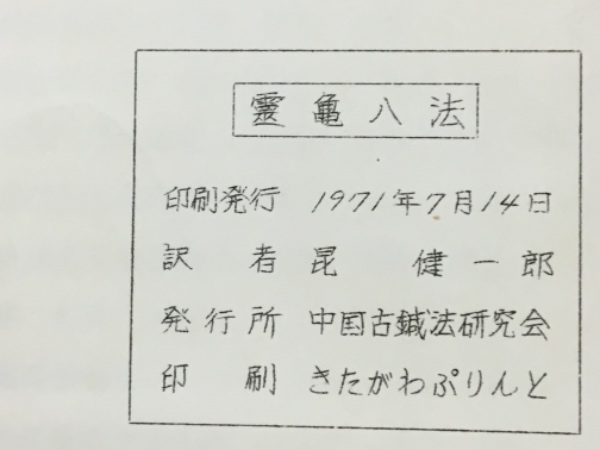 靈亀八法
印刷発行 1971年7月14日
訳者 昆健一郎
発行所 中国古鍼法研究会
印刷 きたがわぷりんと